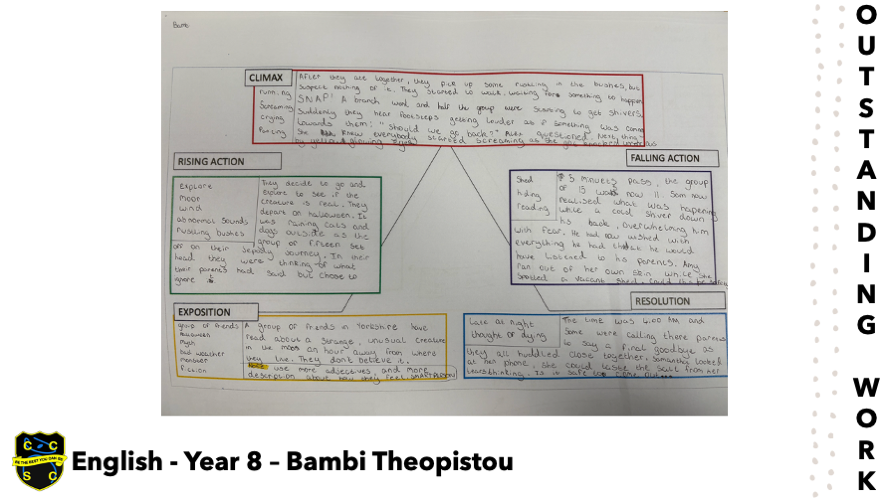 Bambi
CLIMAX
running
Screaming
crying
After they are together, they pick up some rustling in the bushes, but
suspect nothing of it. They started to walk, waiting for something to happen
SNAP! A branch went and half the group were starting to get shivers.
Suddenly they hear footsteps getting louder as if something was coming
towards them: "Should we go back?" Alex questioned. Next thing
She knew everybody started screaming as she got knocked
by yellow glowing eyes
RISING ACTION
Explore
moor
wind
abnormal sounds
rusling bushes
They decide to go and
explore to see if the
creature is real. They
depart on halloween. It
was raining cats and
dogs outside as the
group of fifteen set
off on their journey. In their
head they were thinking of what
their parents had said but chose to
ignore it
FALLING ACTION
Shed
hiding
reading
5 minutes pass, the group
of 15 was now 11. Sam now
realised what was happening
while a cold shiver down
his back, overwhelming him
with fear. He had now wished with
everything he had that he would
have listened to his parents. Amy
ran out of her own skin while she
spotted a vacant shed. Could this be safe
EXPOSITION
group of friends
halloween
Myth
bad weather
monster
fiction
A group of friends in Yorkshire have
read about a strange, unusual creature
in the moors an hour away from where
they live. They don't believe it.
use more adjectives, and more
description about how they feel. SMARTPERSON
RESOLUTION
Late at night
thought of dying
The time was 4:00 AM and
Some were calling there parents
to say a final goodbye as
they all huddled close together. Samantha looked
at her phone. She could taste the salt from her
tears thinking. Is it safe to come out...
English - Year 8 – Bambi Theopistou
C C
BE THE BEST YOU CAN BE
S C
OUTSTANDING WORK